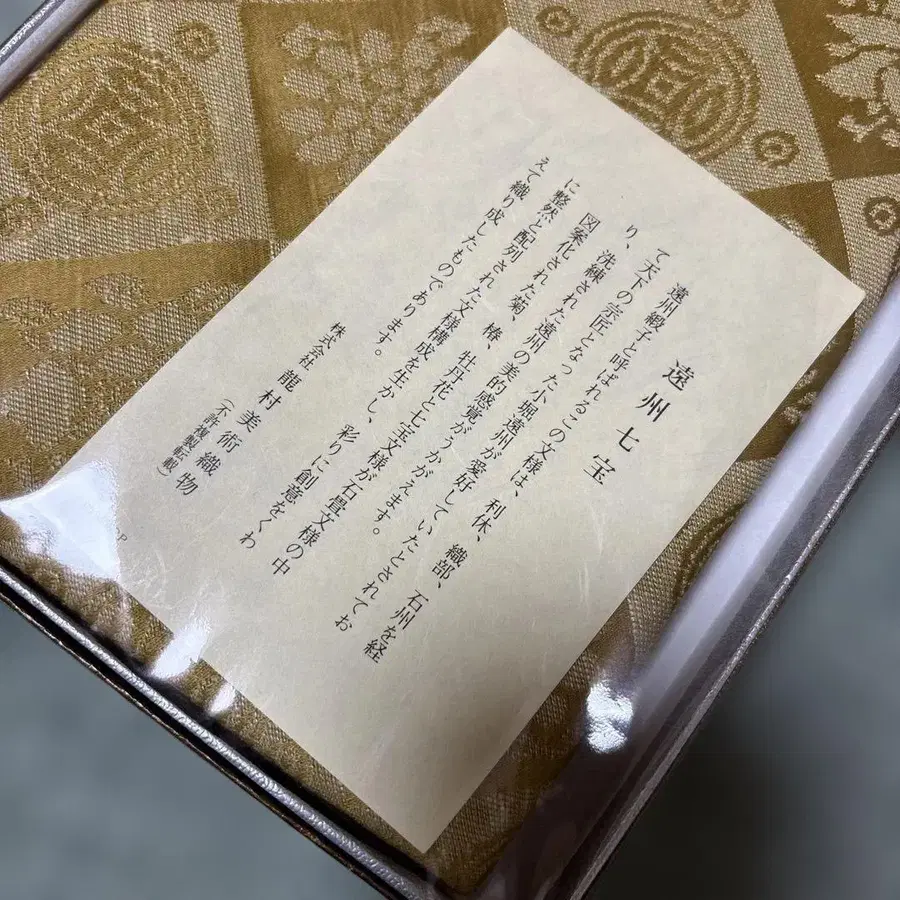 遠州七宝
遠州緞子と呼ばれるこの文様は、利休、織部、石州を経
て天下の宗匠となった小堀遠州が愛好していたとされてお
り、洗練された遠州の美的感覚がうかがえます。
図案化された菊、椿、牡丹花と七宝文様が石畳文様の中
に整然と配列された文様構成を生かし、彩りに創意をくわ
えて織り成したものであります。
株式会社 龍村美術織物
(不許複製転載)